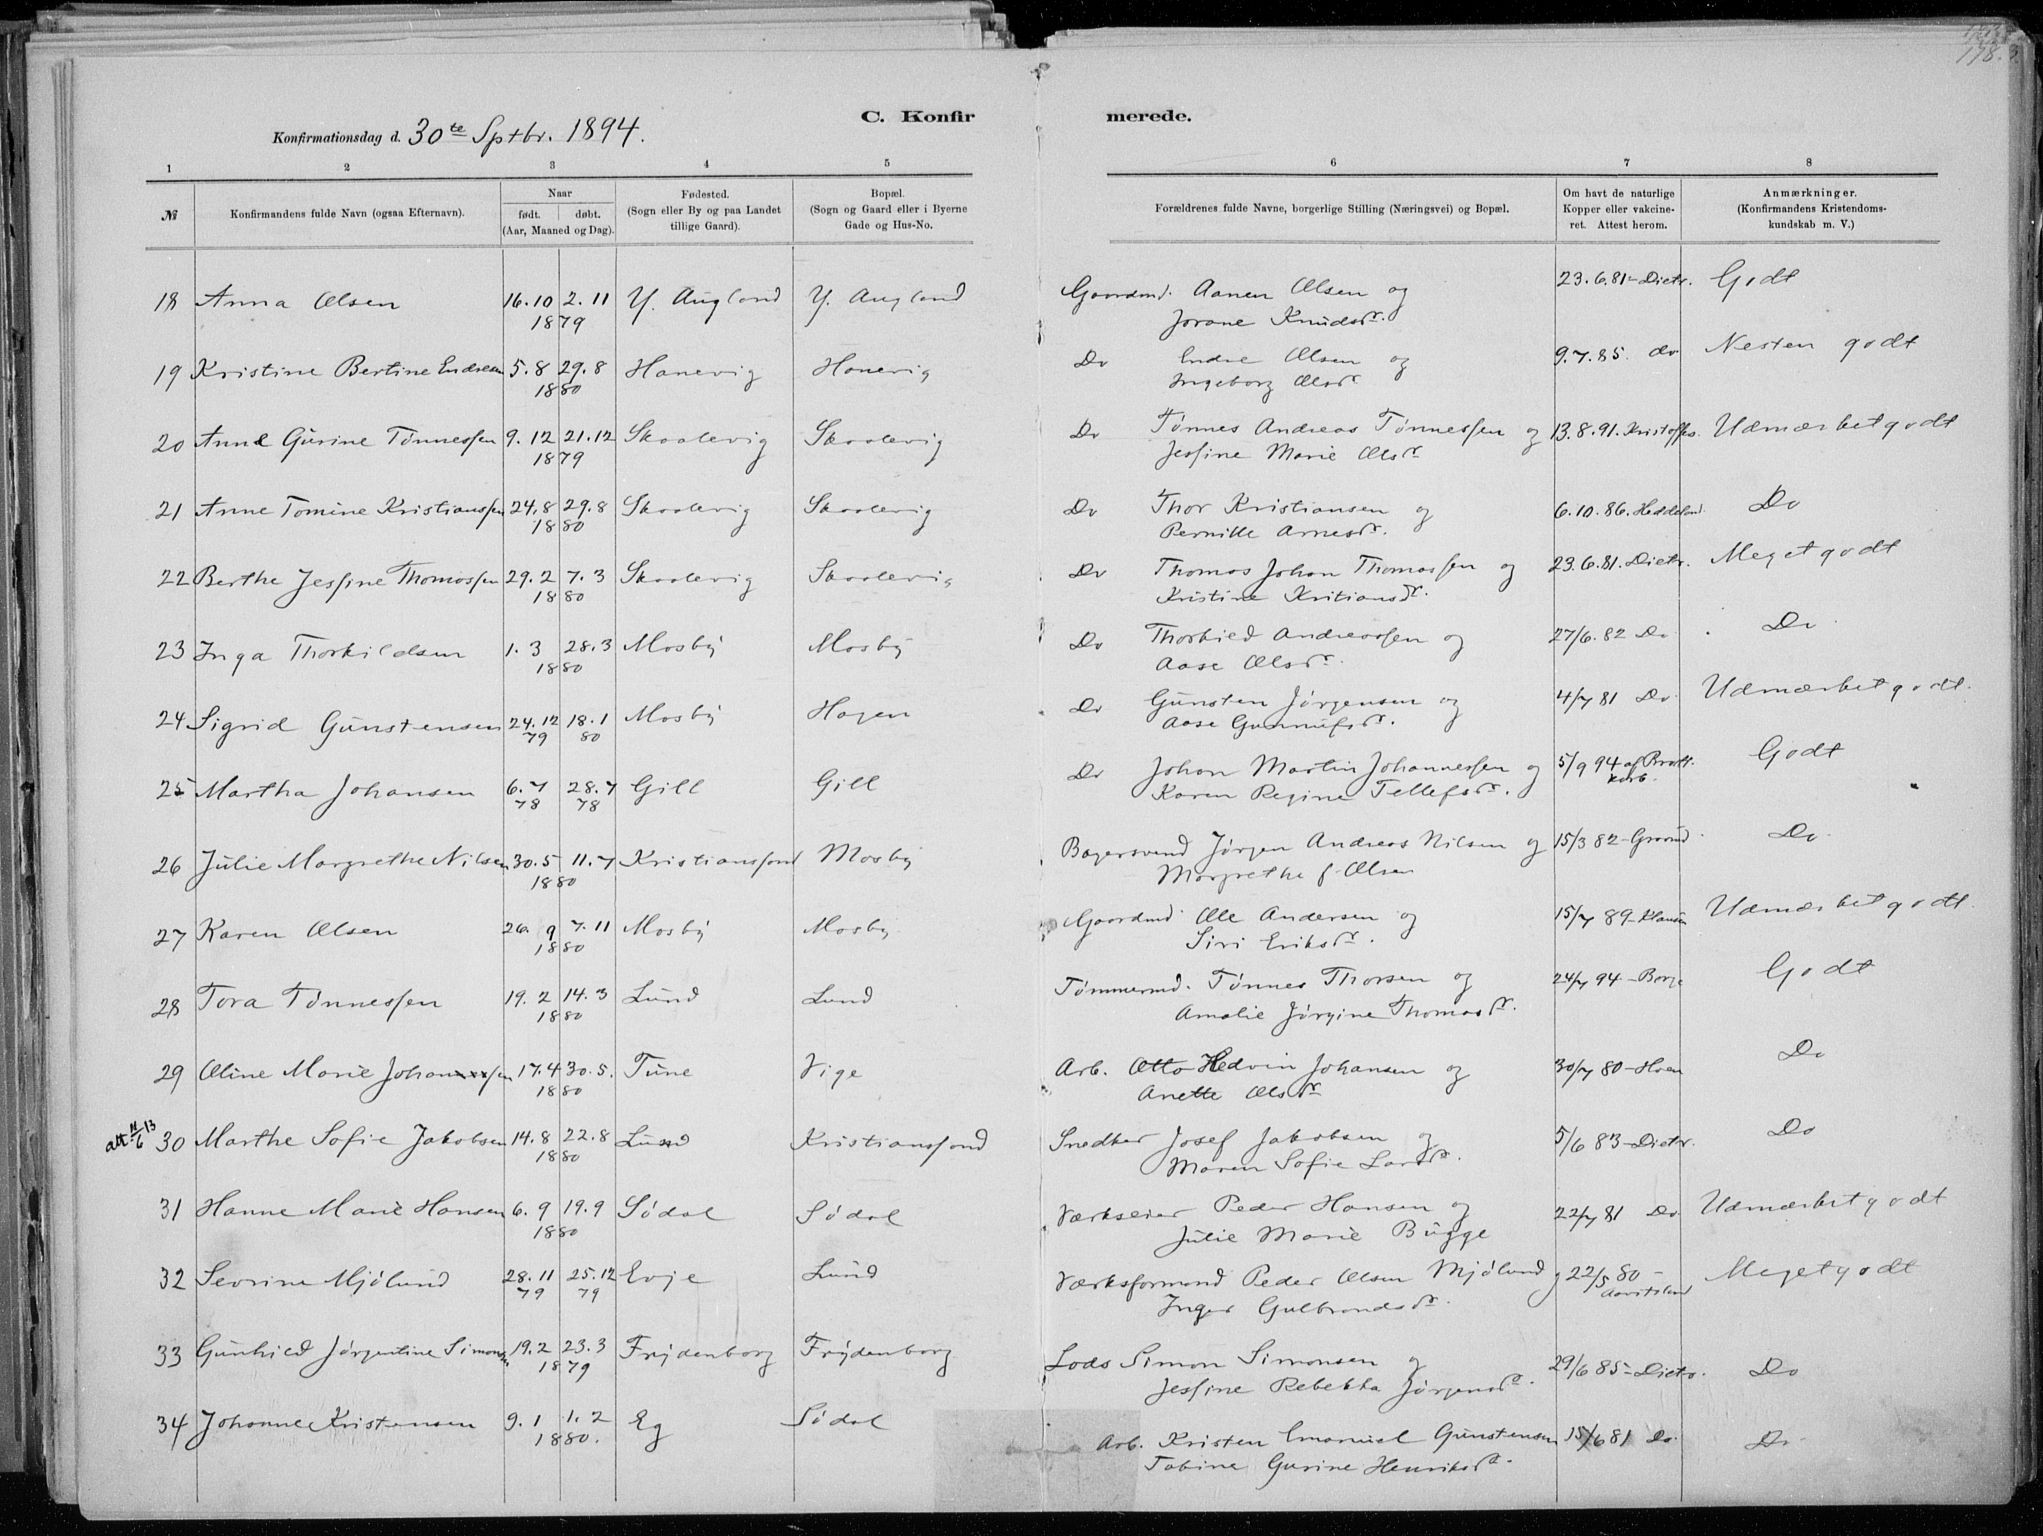 178.
C. Konfirmerede.
Konfirmationsdag d. 30te Sptbr. 1894.
1 2 3 4 5 6 7 8
№ Konfirmandens fulde Navn (ogsaa Efternavn). Naar født. døbt. (Aar, Maaned og Dag). Fødested. (Sogn eller By og paa Landet tillige Gaard). Bopæl. (Sogn og Gaard eller i Byerne Gade og Hus-No. Forældrenes fulde Navne, borgerlige Stilling (Næringsvei) og Bopæl. Om havt de naturlige Kopper eller vakcineret. Attest herom. Anmærkninger. (Konfirmandens Kristendomskundskab m. V.)
18 Anna Olsen 16.10 2.11 Y. Augland Y. Augland Gaardmd. Aanen Olsen og 23.6.81 - Dietr. Godt
1879 Jorane Knudsdr.
19 Kristine Bertine Endresen 5.8 29.8 Hanevig Hanevig Do Endre Olsen og 9.7.85. do Nesten godt
1880 Ingeborg Olsdr
20 Anne Gurine Tønnessen 9.12 21.12 Skaalevig Skaalevig Do Tønnes Andreas Tønnessen og 13.8.91. Kristoffes. Udmærket godt
1879 Jessine Marie Olsdr
21 Anne Tomine Kristianssen 24.8 29.8 Skaalevig Skaalevig Do Thor Kristiansen og 6.10.86. Heddeland. Do
1880 Pernille Arnesdr.
22 Berthe Jessine Thomassen 29.2 7.3 Skaalevig Skaalevig Do Thomas Johan Thomassen og 23.6.81. Dietr. Meget godt
1880 Kristine Kritiansdr.
23 Inga Thorkildsen 1.3 28.3 Mosby Mosby Do Thorkild Andreassen og 27/6.82 Do Do
1880 Aase Olsdr.
24 Sigrid Gunstensen 24.12 18.1 Mosby Hagen Do Gunsten Jørgensen og 4/7 81 Do Udmærket godt.
79 80 Aase Gunnufsdr.
25 Martha Johansen 6.7 28.7 Gill Gill Do Johan Martin Johannessen og 5/9 94 af Godt
78 78 Karen Regine Tellefsdr.
26 Julie Margrethe Nilsen 30.5 11.7 Kristianssand Mosby Bagersvend Jørgen Andreas Nilsen og 15/3 82 - Do
1880 Margrethe f. Olsen
27 Karen Olsen 26.9 7.11 Mosby Mosby Gaardmd. Ole Andersen og 15/7 89 - Klausen Udmærket godt.
1880 Siri Eriksdr.
28 Tora Tønnessen 19.2 14.3 Lund Lund Tømmermd. Tønnes Thorsen og 24/7 94 - Borge Godt
1880 Amalie Jørgine Thomasdr.
29 Oline Marie Johansen 17.4 30.5. Tune Vige Arb. Otto Hedvin Johansen og 30/7 80 - Hoen Do
1880 Anette Olsdr
att 11/6 13 30 Marthe Sofie Jakobsen 14.8 22.8 Lund Kristianssand Snedker Josef Jakobsen og 5/6 83 - Dietr. Do
1880 Maren Sofie Larsdr.
31 Hanne Marie Hansen 6.9 19.9 Sødal Sødal Værkseier Peder Hansen og 22/7 81 Do Udmærket godt
1880 Julie Marie Bugge
32 Sevrine Mjølund 28.11 25.12 Evje Lund Værksformand Peder Olsen Mjølund og 22/5 80 - Meget godt
79 79 Inger Gulbrandsdr.
33 Gunhild Jørgentine Simonsen 19.2 23.3 Frydenborg Frydenborg Lods Simon Simonsen og 29/6 85 - Dietr. Do
1879 Jessine Rebekka Jørgensdr.
34 Johanne Kristensen 9.1 1.2 Eg Sødal Arb. Kristen Emanuel Gunstensen 15/6 81 Do Do
1880. Tobine Gurine Henriksdr.